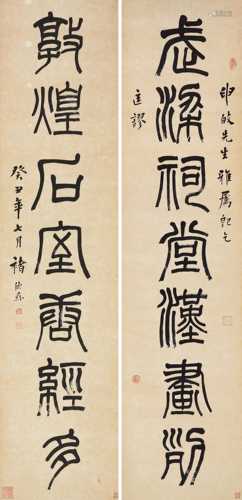 武梁祠堂漢畫
先生雅屬即乞
匡謬
敦煌石室唐經多
癸丑年七月褚德彝